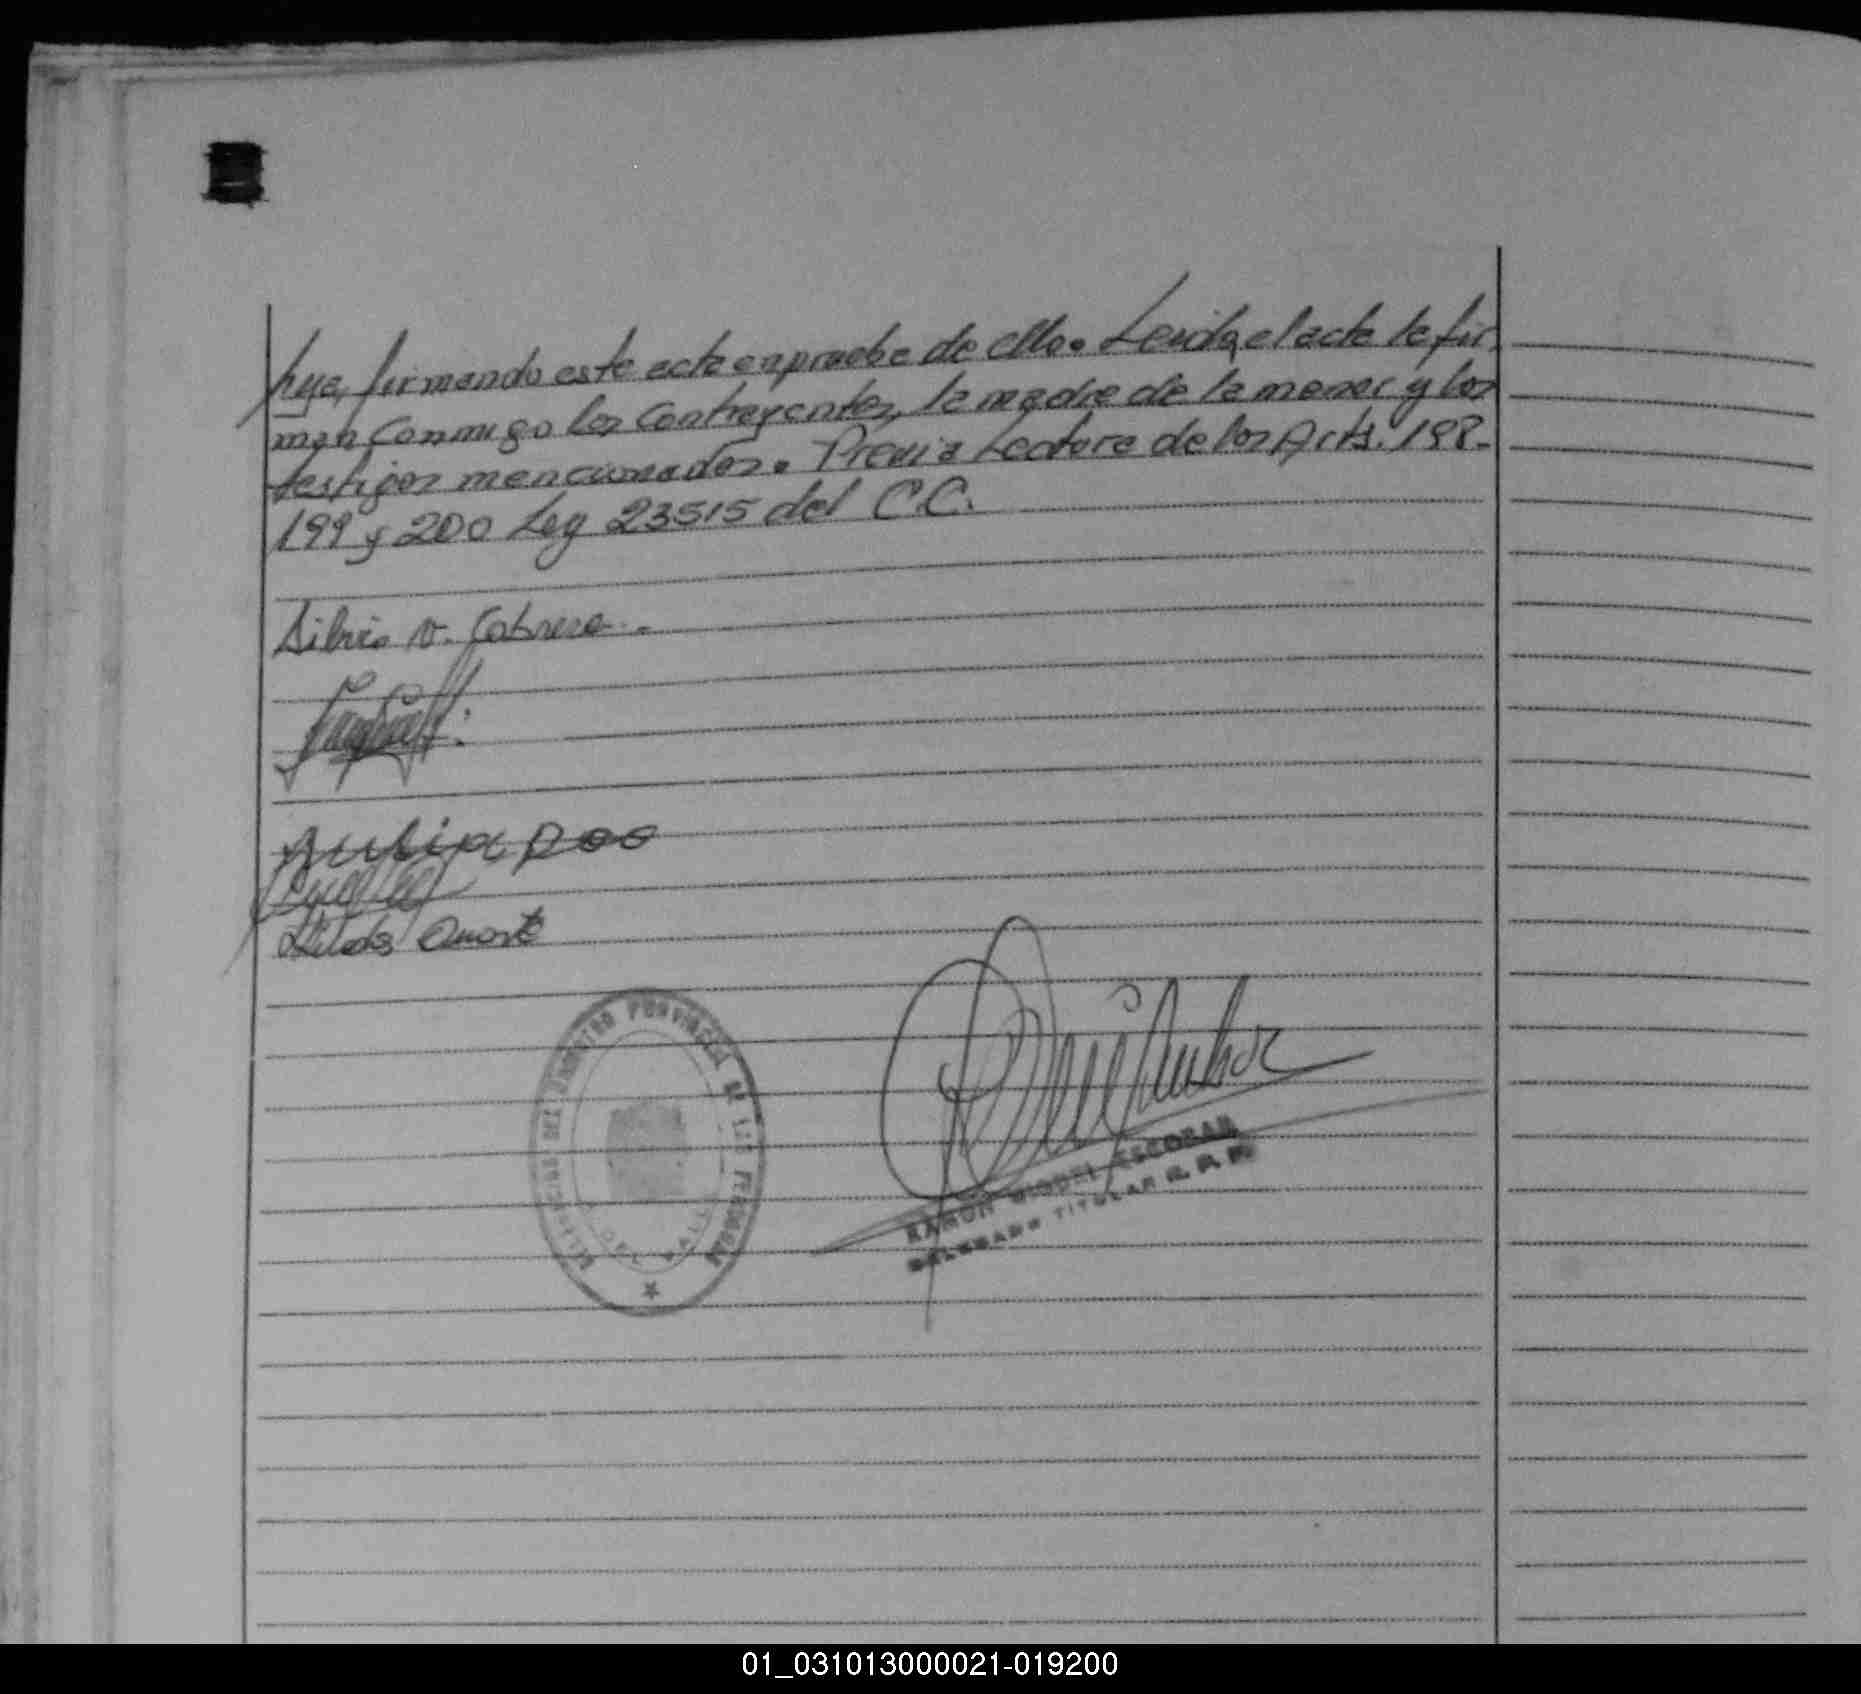 hija, firmando este acta en prueba de ello. Leida, el acta la fir
man conmigo los contrayentes, la madre de la menor y los
testigos mencionados. Previa Lectura de los Arts. 198-
199 y 200 Ley 23515 del C.C.
Silvia N. Cabrera.
Julia Roo
Hilda Duarte
REGISTRO PROVINCIAL DE LAS PERSONAS
RAMON MIGUEL ESCOBAR
DELEGADO TITULAR R. P. P.
01_031013000021-019200